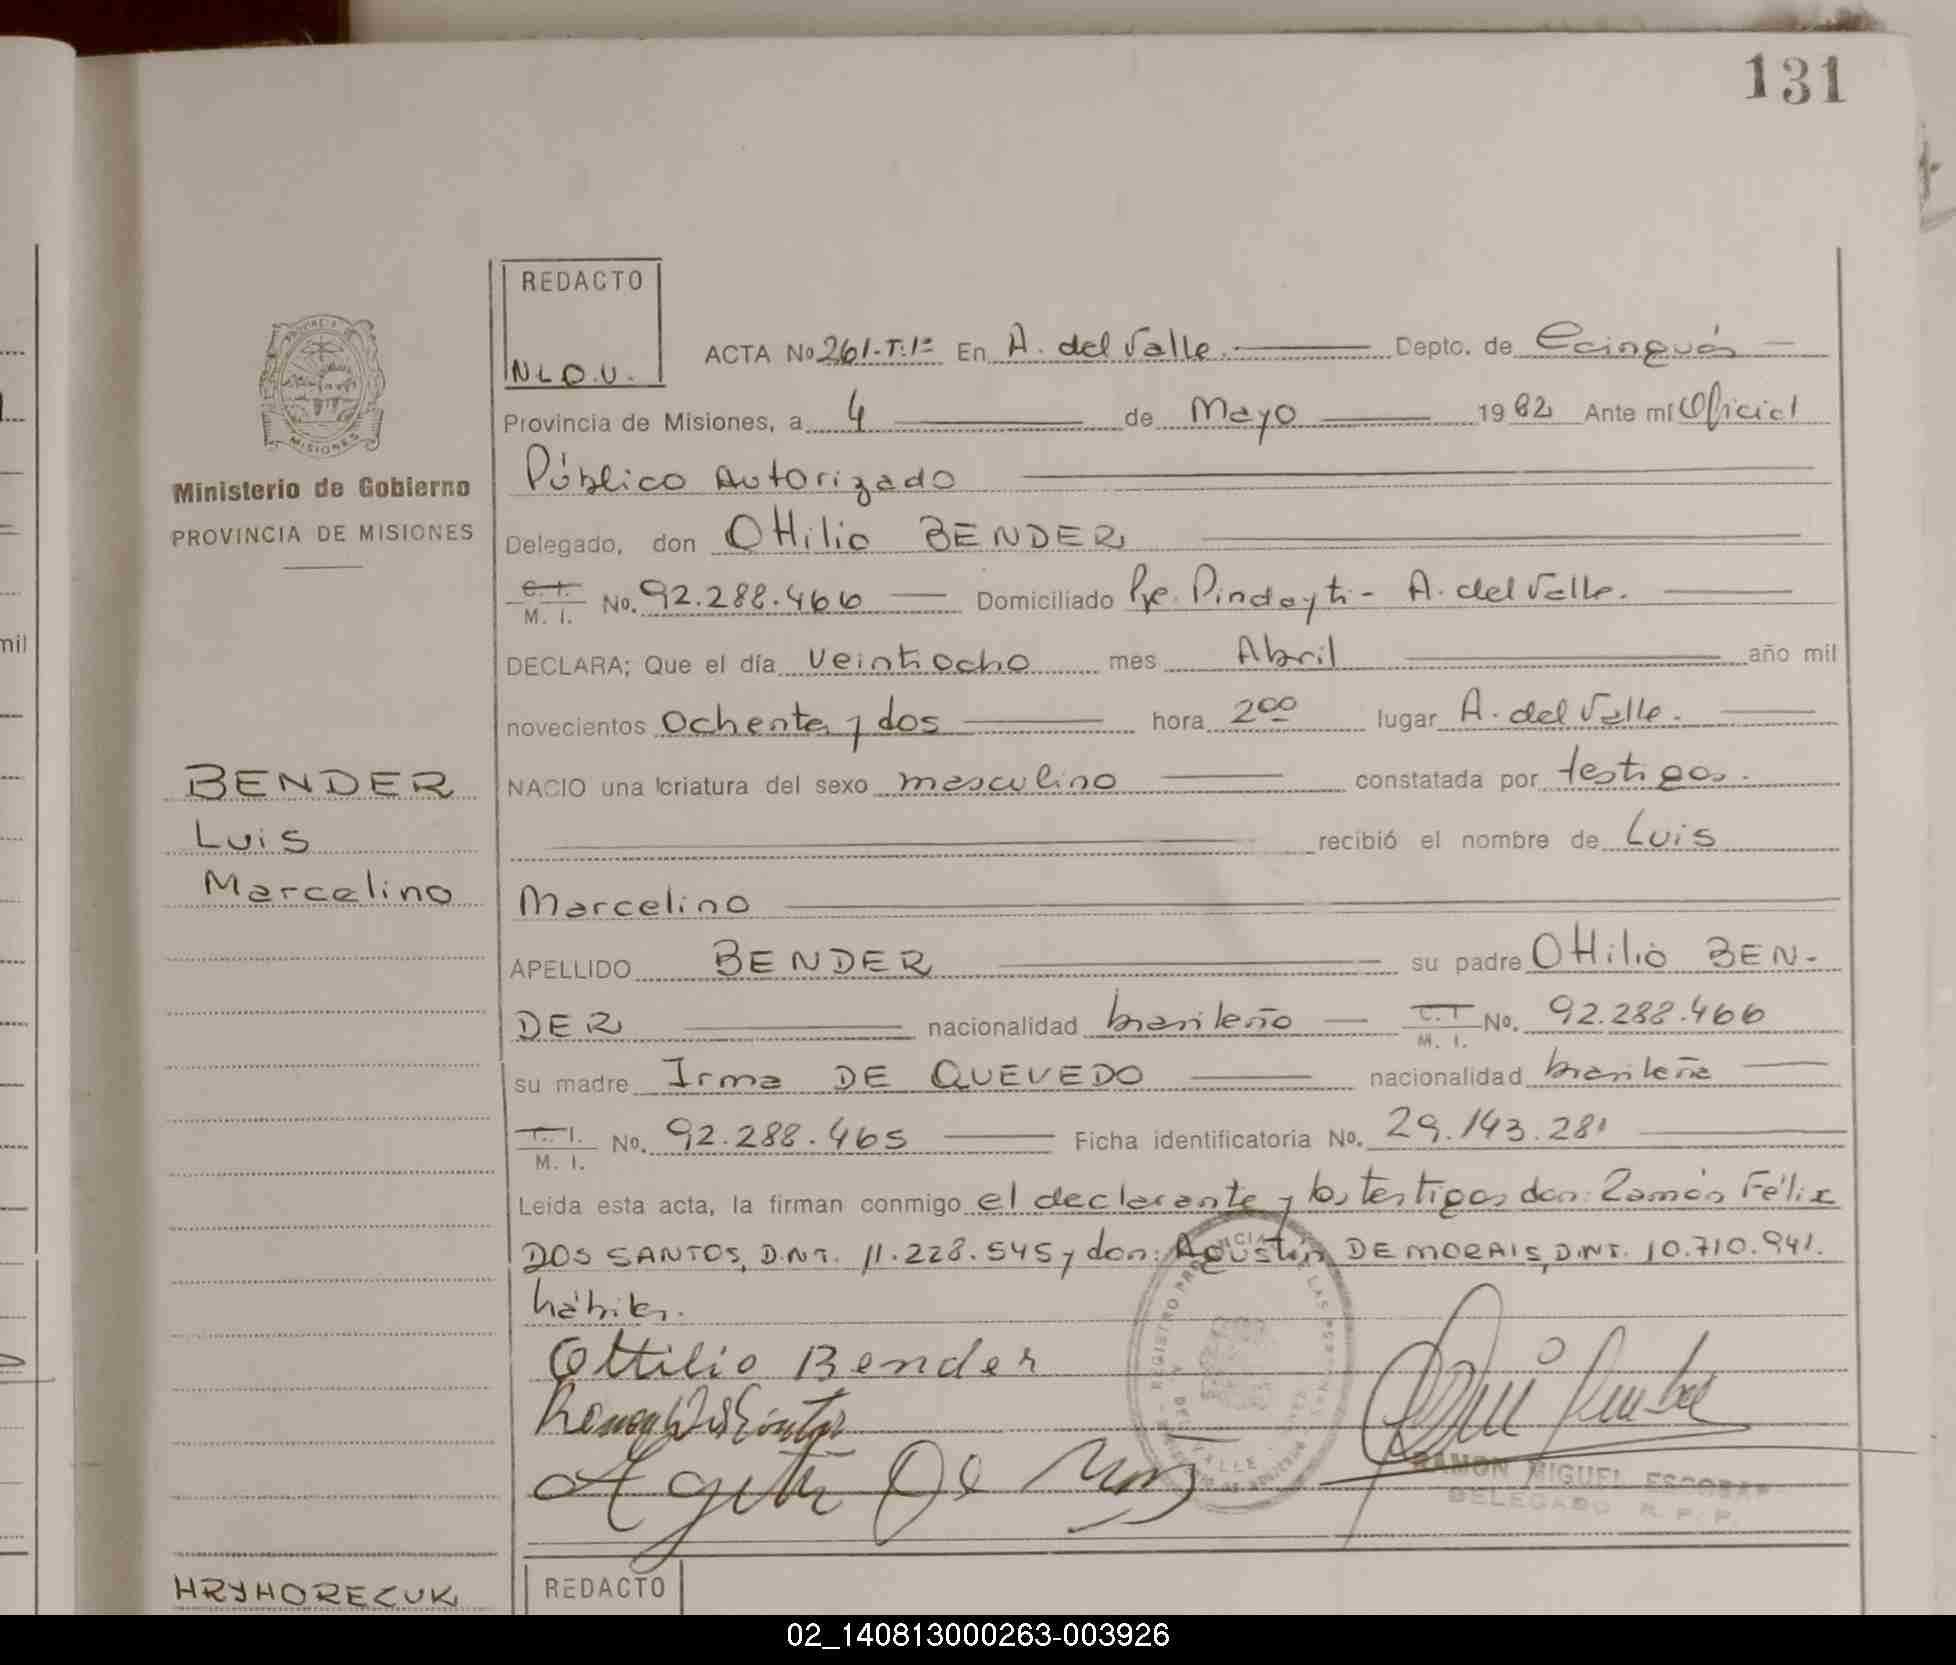 131
REDACTO
N L O.U.
ACTA No 261-T:1º En A. del Valle. Depto. de Cainguás
Provincia de Misiones, a 4 de Mayo 1982 Ante mí Oficial
Público Autorizado
Ministerio de Gobierno
PROVINCIA DE MISIONES
Delegado, don Ottilio BENDER
C. I. M. I. No. 92.288.466 Domiciliado Pje. Pindayti - A. del Valle.
mil
DECLARA; Que el día veintiocho mes Abril año mil
novecientos ochenta y dos hora 200 lugar A. del Valle.
BENDER
Luis
Marcelino
NACIO una criatura del sexo masculino constatada por testigos.
recibió el nombre de Luis
Marcelino
APELLIDO BENDER su padre Ottilio BEN-
DER nacionalidad brasileño C. I M. I. No. 92.288.466
su madre Irma DE QUEVEDO nacionalidad brasileña
C. I. M. I. No. 92.288.465 Ficha identificatoria No. 29.143.281
Leída esta acta, la firman conmigo el declarante y los testigos don: Ramón Félix
DOS SANTOS, D.N.I. 11.228.545 y don: Agustín DE MORAIS, D.N.I. 10.710.941.
hábiles.
Ottilio Bender
RAMON MIGUEL ESCOBAR
DELEGADO R. P. P.
HRYHORECZUK
REDACTO
02_140813000263-003926